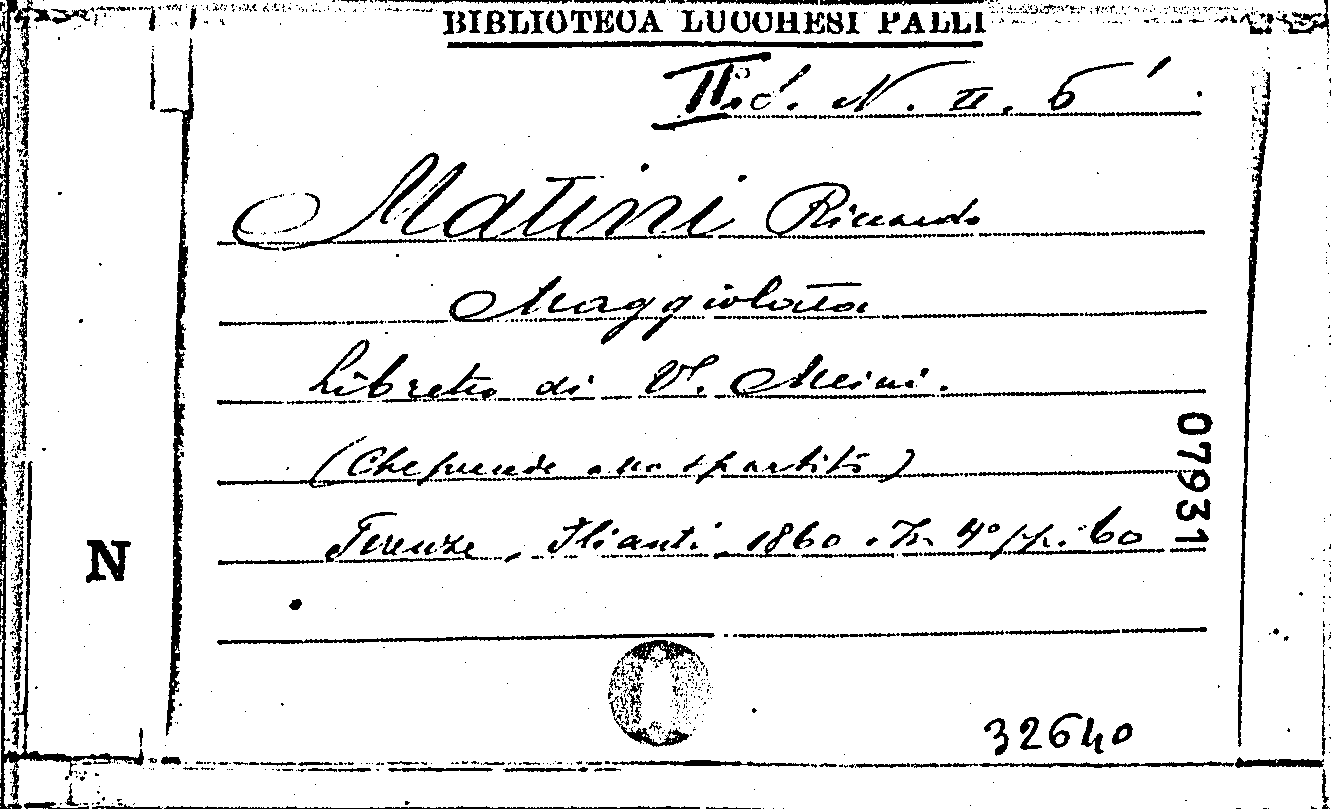 BIBLIOTECA LUCCHESI PALLI
II. N. II. 6
Matini Riccardo
Maggiolata
Libretto di V. Meini.
(Che prende uno spartito)
Firenze, 1860. In 4° pp. 60
07931
N
32640